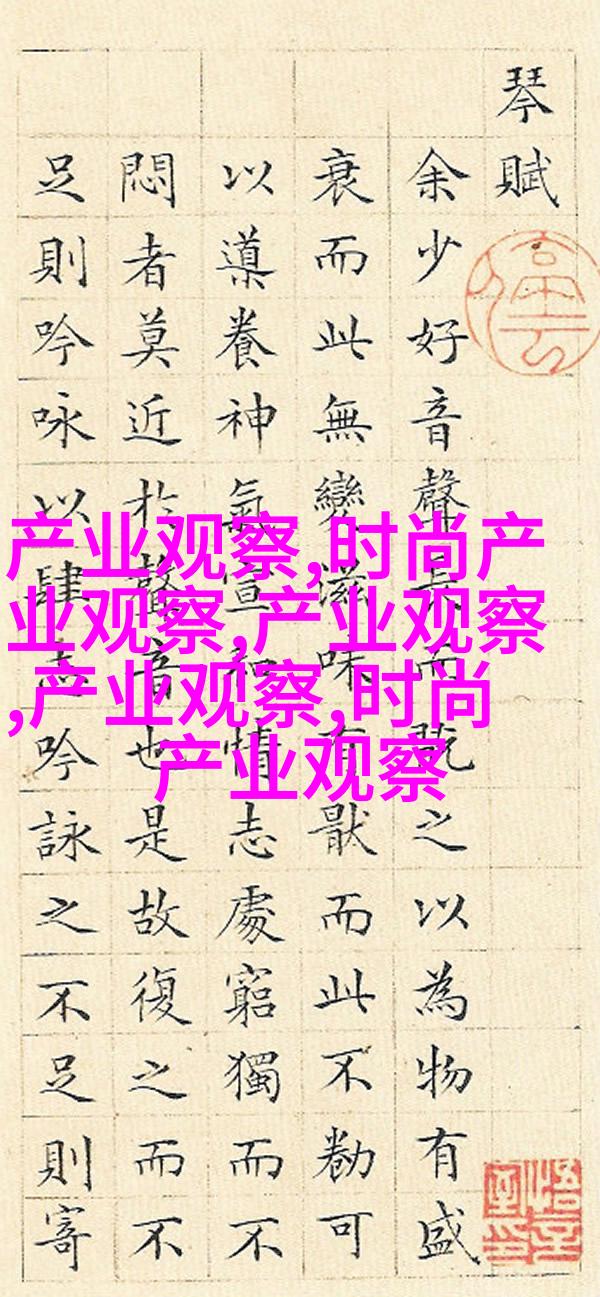 琴賦
余少好音聲長而翫之以為物有盛
衰而此無變滋味有猒而此不勌可
以導養神氣宣和情志處窮獨而不
悶者莫近於聲音也是故復之而不
足則吟咏以肆志吟詠之不足則寄
产业观察,时尚产
业观察,产业观察
,产业观察,时尚
产业观察